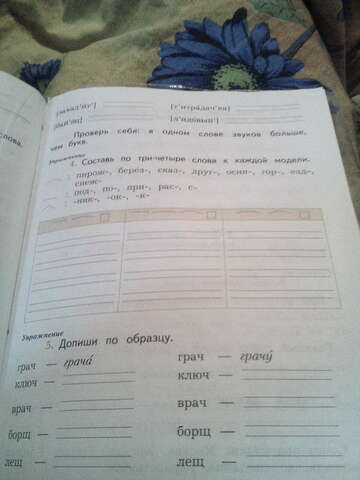 слова.
Проверь себя: в одном слове звуков больше,
чем букв.
Упражнение
4. Составь по три-четыре слова к каждой модели.
: пирож-, берёз-, сказ-, друг-, осин-, гор-, езд-,
снеж-
: под-, по-, при-, рас-, с-
: -ник-, -ок-, -к-
Упражнение
5. Допиши по образцу.
грач — грача́ грач — грачу́
ключ — ключ —
врач — врач —
борщ — борщ —
лещ — лещ —